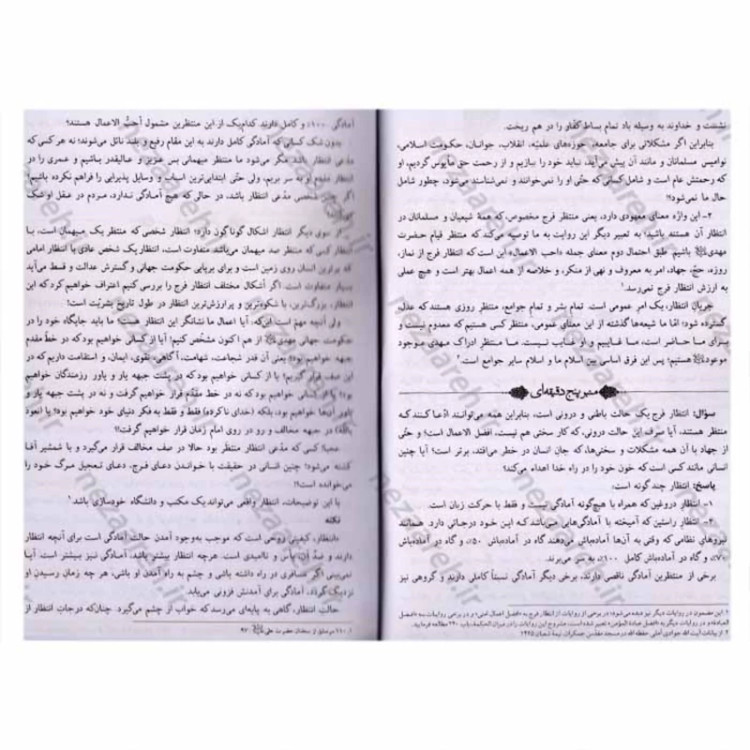 نشست و خداوند به وسیله باد تمام بساط کفار را در هم ریخت.
بنابراین اگر مشکلاتی برای جامعه، حوزه‌های علمیّه، انقلاب، جوانان، حکومت اسلامی،
نوامیس مسلمانان و مانند آن پیش می‌آید، نباید خود را ببازیم و از رحمت حق مأیوس گردیم، او
که رحمتش عام است و شامل کسانی که حتّی او را نمی‌خوانند و نمی‌شناسند می‌شود، چطور شامل
حال ما نمی‌شود؟!
۲- این واژه معنای معهودی دارد، یعنی منتظر فرج مخصوص، که همهٔ شیعیان و مسلمانان در
انتظار آن هستند باشید؛ به تعبیر دیگر این روایت به ما توصیه می‌کند که منتظر قیام حضرت
مهدی باشیم. طبق احتمال دوم معنای جمله «احب الاعمال» این است که انتظار فرج از نماز،
روزه، حجّ، جهاد، امر به معروف و نهی از منکر، و خلاصه از همه اعمال بهتر است و هیچ عملی
به ارزش انتظار فرج نمی‌رسد.¹
جریان انتظار، یک امر عمومی است. تمام بشر و تمام جوامع، منتظر روزی هستند که عدل،
گسترده شود؛ امّا ما شیعه‌ها گذشته از این معنای عمومی، منتظر کسی هستیم که معدوم نیست و
برای ما حاضر است، ما غاییم و او غایب نیست. ما منتظر ادراک مهدی موجود
موعود هستیم؛ پس این فرق اساسی بین اسلام ما و اسلام سایر جوامع است.²
منبر پنج دقیقه‌ای
سؤال: انتظار فرج یک حالت باطنی و درونی است، بنابراین همه می‌توانند ادّعا کنند که
منتظر هستند. آیا صرف این حالت درونی، که کار سختی هم نیست، افضل الاعمال است؛ و حتّی
از جهاد با آن همه مشکلات و سختی‌ها، که جان انسان در خطر می‌افتد، برتر است؟ آیا چنین
انسانی مانند کسی است که خون خود را در راه خدا اهداء می‌کند؟
پاسخ: انتظار چند گونه است:
۱- انتظار دروغین که همراه با هیچ‌گونه آمادگی نیست و فقط با حرکت زبان است.
۲- انتظار راستین که آمیخته با آمادگی‌هایی می‌باشد که این خود درجاتی دارد. همانند
نیروهای نظامی که وقتی به آن‌ها آماده‌باش می‌دهند گاه در آماده‌باش ۵۰٪ و گاه در آماده‌باش
۷۰٪ و گاه در آماده‌باش کامل ۱۰۰٪ به سر می‌برند.
برخی از منتظرین آمادگی ناقصی دارند، برخی دیگر آمادگی نسبتاً کاملی دارند و گروهی نیز
۱. این مضمون در روایات دیگر نیز دیده می‌شود؛ در برخی از روایات از انتظار فرج به «افضل اعمال امتی» و در برخی روایات به «افضل
العبادة» و در روایات دیگر به «افضل عبادة المؤمن» تعبیر شده است. مشروح این روایات را در میزان الحکمة، باب ۲۴۰ مطالعه فرمایید.
۲. از بیانات آیت الله جوادی آملی حفظه الله در مسجد مقدس جمکران، نیمهٔ شعبان ۱۴۲۵
آمادگی ۱۰۰٪ و کامل دارند. کدام‌یک از این منتظرین مشمول أحبّ الاعمال هستند؟
بدون شک کسانی که آمادگی کامل دارند به این مقام رفیع و بلند نائل می‌شوند؛ نه هر کسی که
مدّعی انتظار باشد. مگر می‌شود ما منتظر میهمانی بس عزیز و عالیقدر بباشیم و عمری را در
انتظار قدوم او به سر بریم، ولی حتّی ابتدایی‌ترین اسباب و وسایل پذیرایی را فراهم نکرده باشیم!
اگر شخصی مدّعی انتظار باشد، در حالی که هیچ آمادگی ندارد، مردم در عقل او شک
از سوی دیگر انتظار اشکال گوناگون دارد؛ انتظار شخصی که منتظر یک میهمان است، با
انتظار کسی که منتظر صد میهمان می‌باشد متفاوت است، انتظار یک شخص عادی با انتظار امامی
که برترین انسان روی زمین است و برای برپایی حکومت جهانی و گسترش عدالت و قسط می‌آید
بسیار متفاوت است. اگر اشکال مختلف انتظار فرج را بررسی کنیم اعتراف خواهیم کرد که این
انتظار، بزرگ‌ترین، با شکوه‌ترین و پرارزش‌ترین انتظار در طول تاریخ بشریّت است!
ولی آنچه مهم است این‌که، آیا اعمال ما نشانگر این انتظار هست؟ ما باید جایگاه خود را در
حکومت جهانی مهدی از هم اکنون مشخّص کنیم! آیا از کسانی خواهیم بود که در خط مقدم
جبهه خواهیم بود؟ یعنی آن قدر شجاعت، شهامت، آگاهی، تقوی، ایمان، و استقامت داریم که در
این صف قرار گیریم؟ یا از کسانی خواهیم بود که در پشت جبهه یار و یاور رزمندگان خواهیم
بود؟ یا از کسانی خواهیم بود که نه در خط مقدم قرار خواهیم گرفت و نه در پشت جبهه یار و
یاور آن‌ها خواهیم بود، بلکه (خدای ناکرده) فقط و فقط به فکر دنیای خود خواهیم بود؟ یا (نعوذ
بالله) در رو در روی امام زمان قرار خواهیم گرفت؟!
عجبا! کسی که مدّعی انتظار منتظر بود حالا در صف مخالف قرار می‌گیرد و با شمشیر آقا
کشته می‌شود! چنین انسانی در حقیقت با خواندن دعای فرج، دعای تعجیل مرگ خود را
می‌خوانده است!
با این توضیحات، انتظار واقعی می‌تواند یک مکتب و دانشگاه خودسازی باشد.¹
نکته
«انتظار، کیفیتی روحی است که موجب به‌وجود آمدن حالت آمادگی است برای آنچه انتظار
دارند و ضد آن، یأس و ناامیدی است. هرچه انتظار بیشتر باشد، آمادگی نیز بیشتر است. آیا
نمی‌بینی اگر مسافری در راه داشته باشی و چشم به راه آمدن او باشی، هر چه زمان رسیدن او
نزدیک گردد، آمادگی برای آمدنش فزونی می‌یابد.
حالت انتظار، گاهی به پایه‌ای می‌رسد که خواب از چشم می‌گیرد. چنان‌که درجات انتظار از
۱. ۱۱۰ سرمشق از سخنان حضرت علی ۹۶
nezzareh.ir